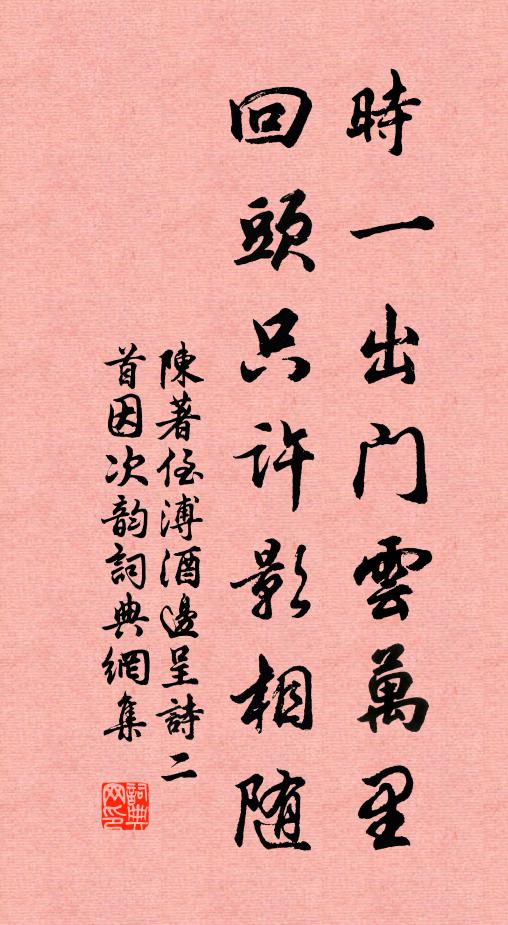 時一出门雲萬里
回頭只許影相随
陳著侄溥酒邊呈詩二
首因次韵詞典網集
詞典网印